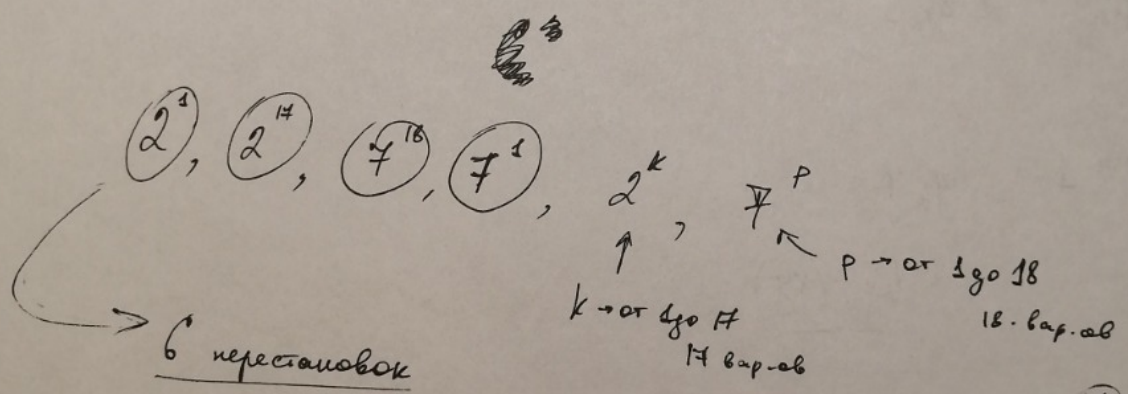 2¹, 2¹⁷, 7¹⁸, 7¹, 2ᵏ, 7ᵖ
p → от 1 до 18
18. вар.ов
k → от 1 до 17
17 вар-ов
6 перестановок